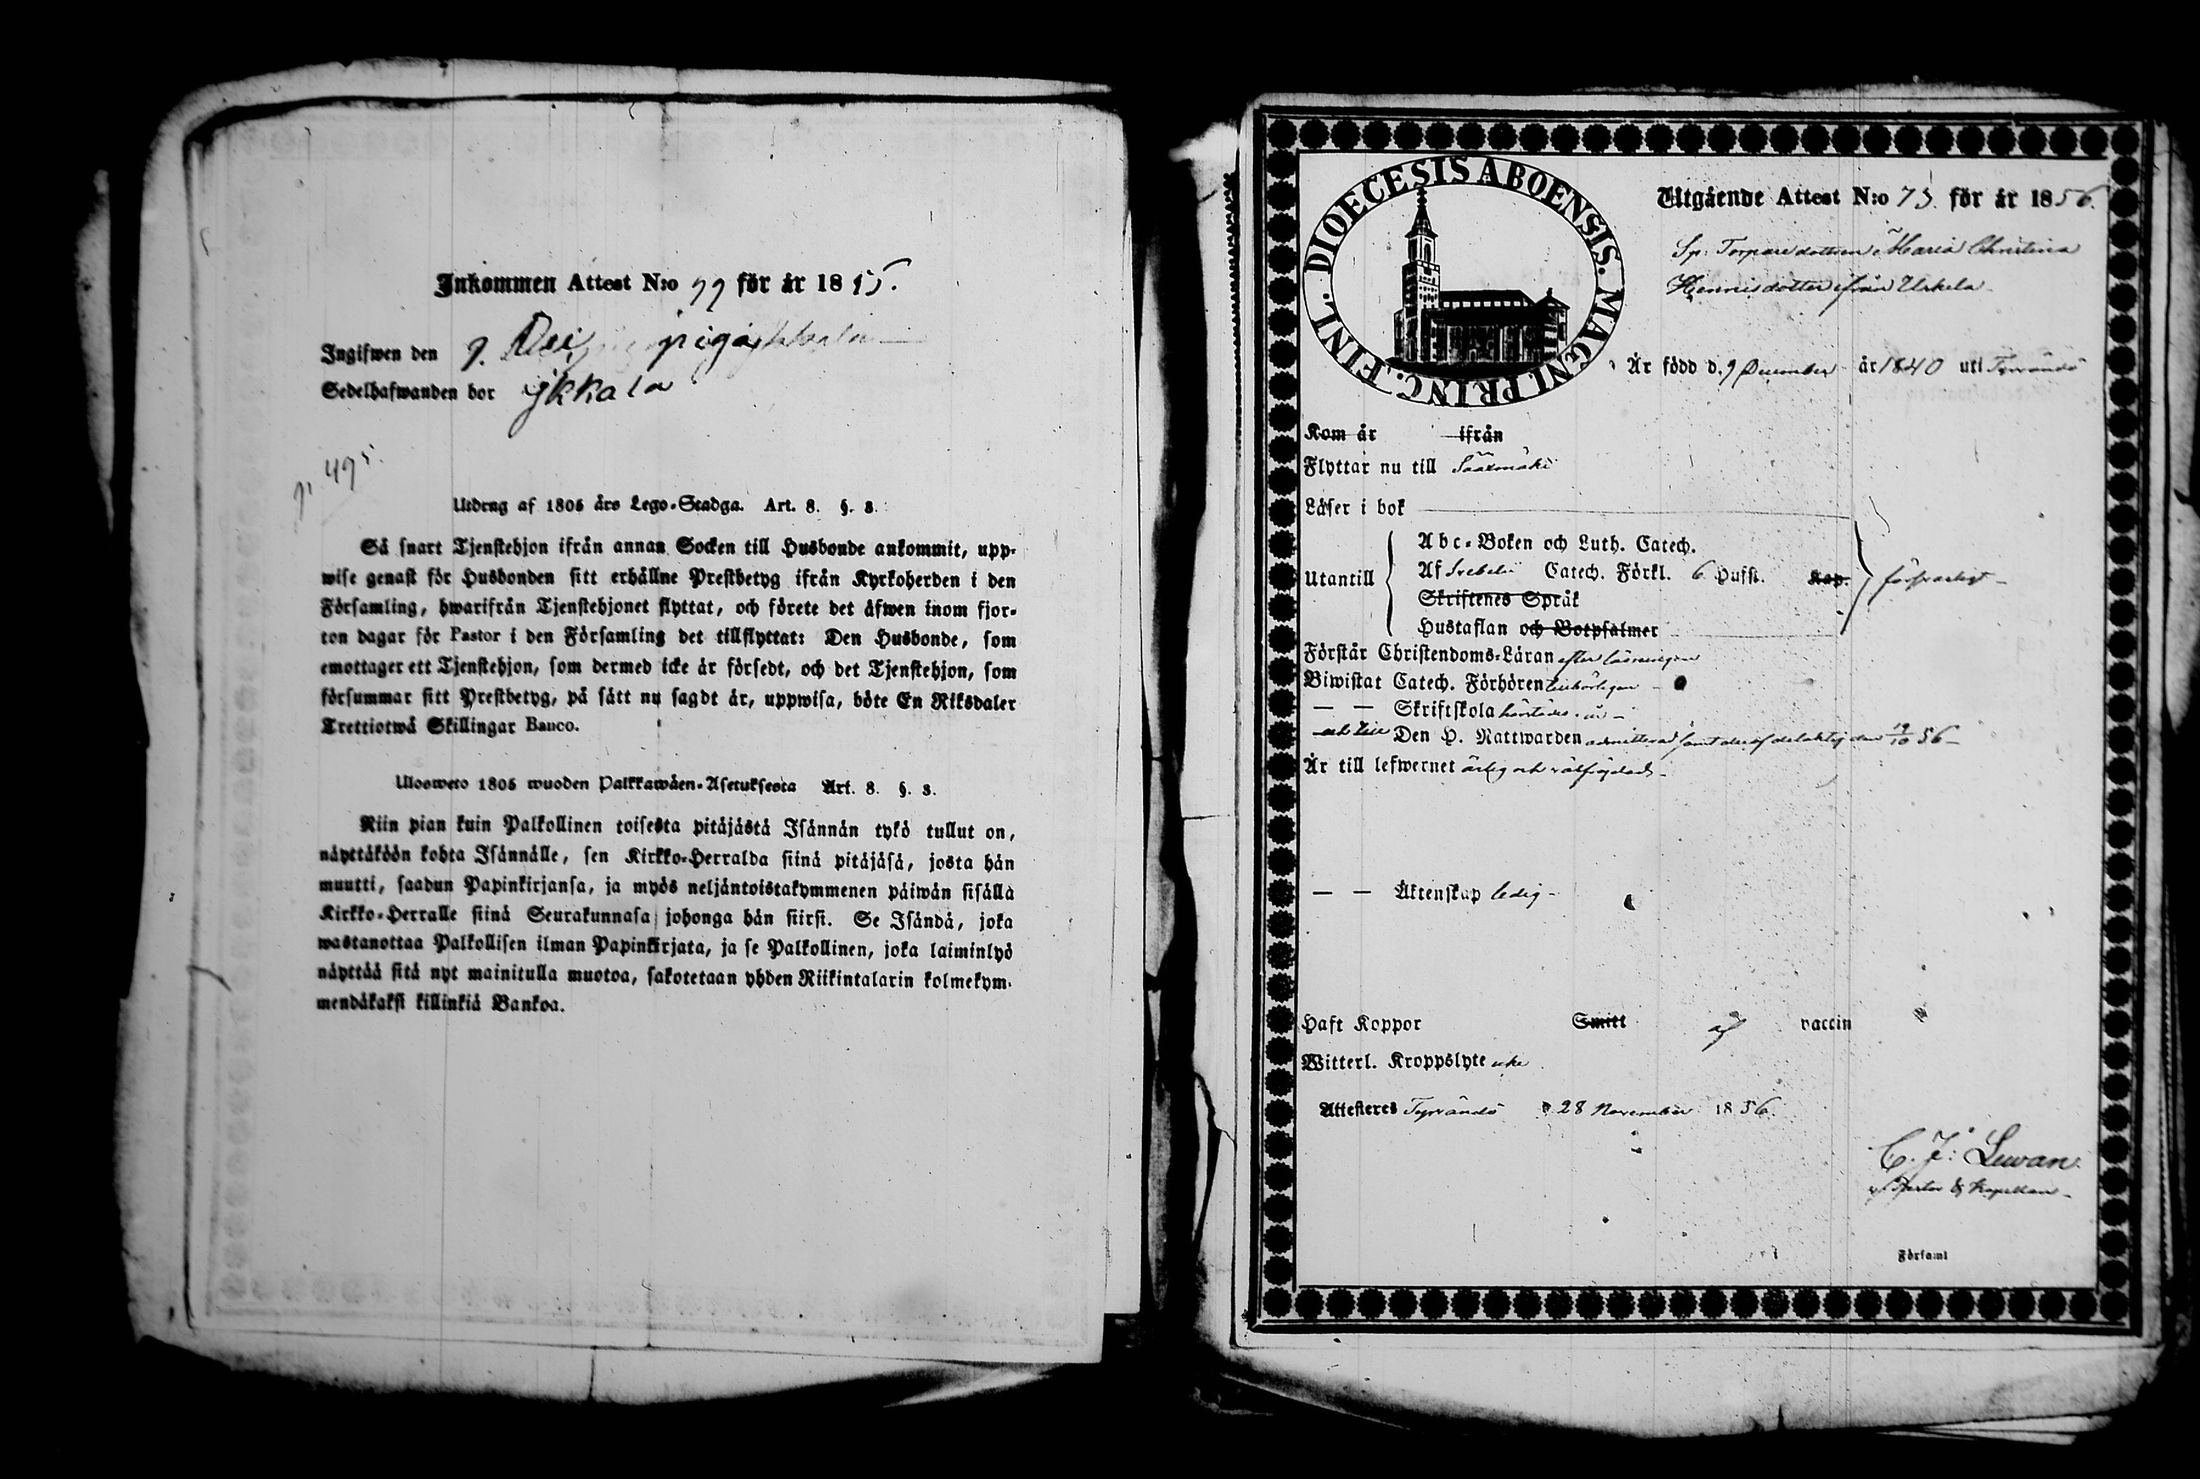 Inkommen Attest N:o 99 för år 1855.
Ingifwen den 9. Dec. piga
Sedelhafwanden bor Ykkala
p. 495.
Utdrag af 1805 års Lego-Stadga. Art. 8. §. 8.
Så snart Tjenstehjon ifrån annan Socken till Husbonde ankommit, upp-
wise genast för Husbonden sitt erhållne Prestbetyg ifrån Kyrkoherden i den
Församling, hwarifrån Tjenstehjonet flyttat, och förete det äfwen inom fjor-
ton dagar för Pastor i den Församling det tillflyttat: Den Husbonde, som
emottager ett Tjenstehjon, som dermed icke är försedt, och det Tjenstehjon, som
försummar sitt Prestbetyg, på sätt nu sagdt är, uppwisa, böte En Riksdaler
Trettiotwå Skillingar Banco.
Ulosweto 1805 wuoden Palkkawäen-Asetuksesta Art. 8. §. 8.
Niin pian kuin Palkollinen toisesta pitäjästä Isännän tykö tullut on,
näyttäköön kohta Isännälle, sen Kirkko-Herralda siinä pitäjäsä, josta hän
muutti, saadun Papinkirjansa, ja myös neljäntoistakymmenen päiwän sisällä
Kirkko-Herralle siinä Seurakunnasa johonga hän siirsi. Se Isändä, joka
wastanottaa Palkollisen ilman Papinkirjata, ja se Palkollinen, joka laiminlyö
näyttää sitä nyt mainitulla muotoa, sakotetaan yhden Riikintalarin kolmekym-
mendäkaksi killinkiä Bankoa.
DIOECESIS ABOENSIS. MAGNI PRINC. FINL.
Utgående Attest N:o 73 för år 1856.
Sp. Torparedottren Maria Christina
Henricsdotter ifrån Uskela
Är född d. 9 December år 1840 uti Tyrvändö
Kom år ifrån
Flyttar nu till Sääxmäki
Läser i bok
Utantill
Abc-Boken och Luth. Catech.
Af Svebelii Catech. Förkl. 6 Hufst. Kap. försvarligt
Skriftenes Språk
Hustaflan och Botpsalmer
Förstår Christendoms-Läran efter läsningen
Biwistat Catech. Förhören
— — Skriftskola
och till Den H. Nattwarden admitterad samt deraf delaktig den 19/10 56
Är till lefwernet ärlig och välfrejdad
— — Äktenskap ledig
Haft Koppor Smitt af vaccin
Witterl. Kroppslyte icke
Attesteres Tyrvändö d 28 November 1856.
C. J. Lewan.
v. Pastor & Kapellan
Församl